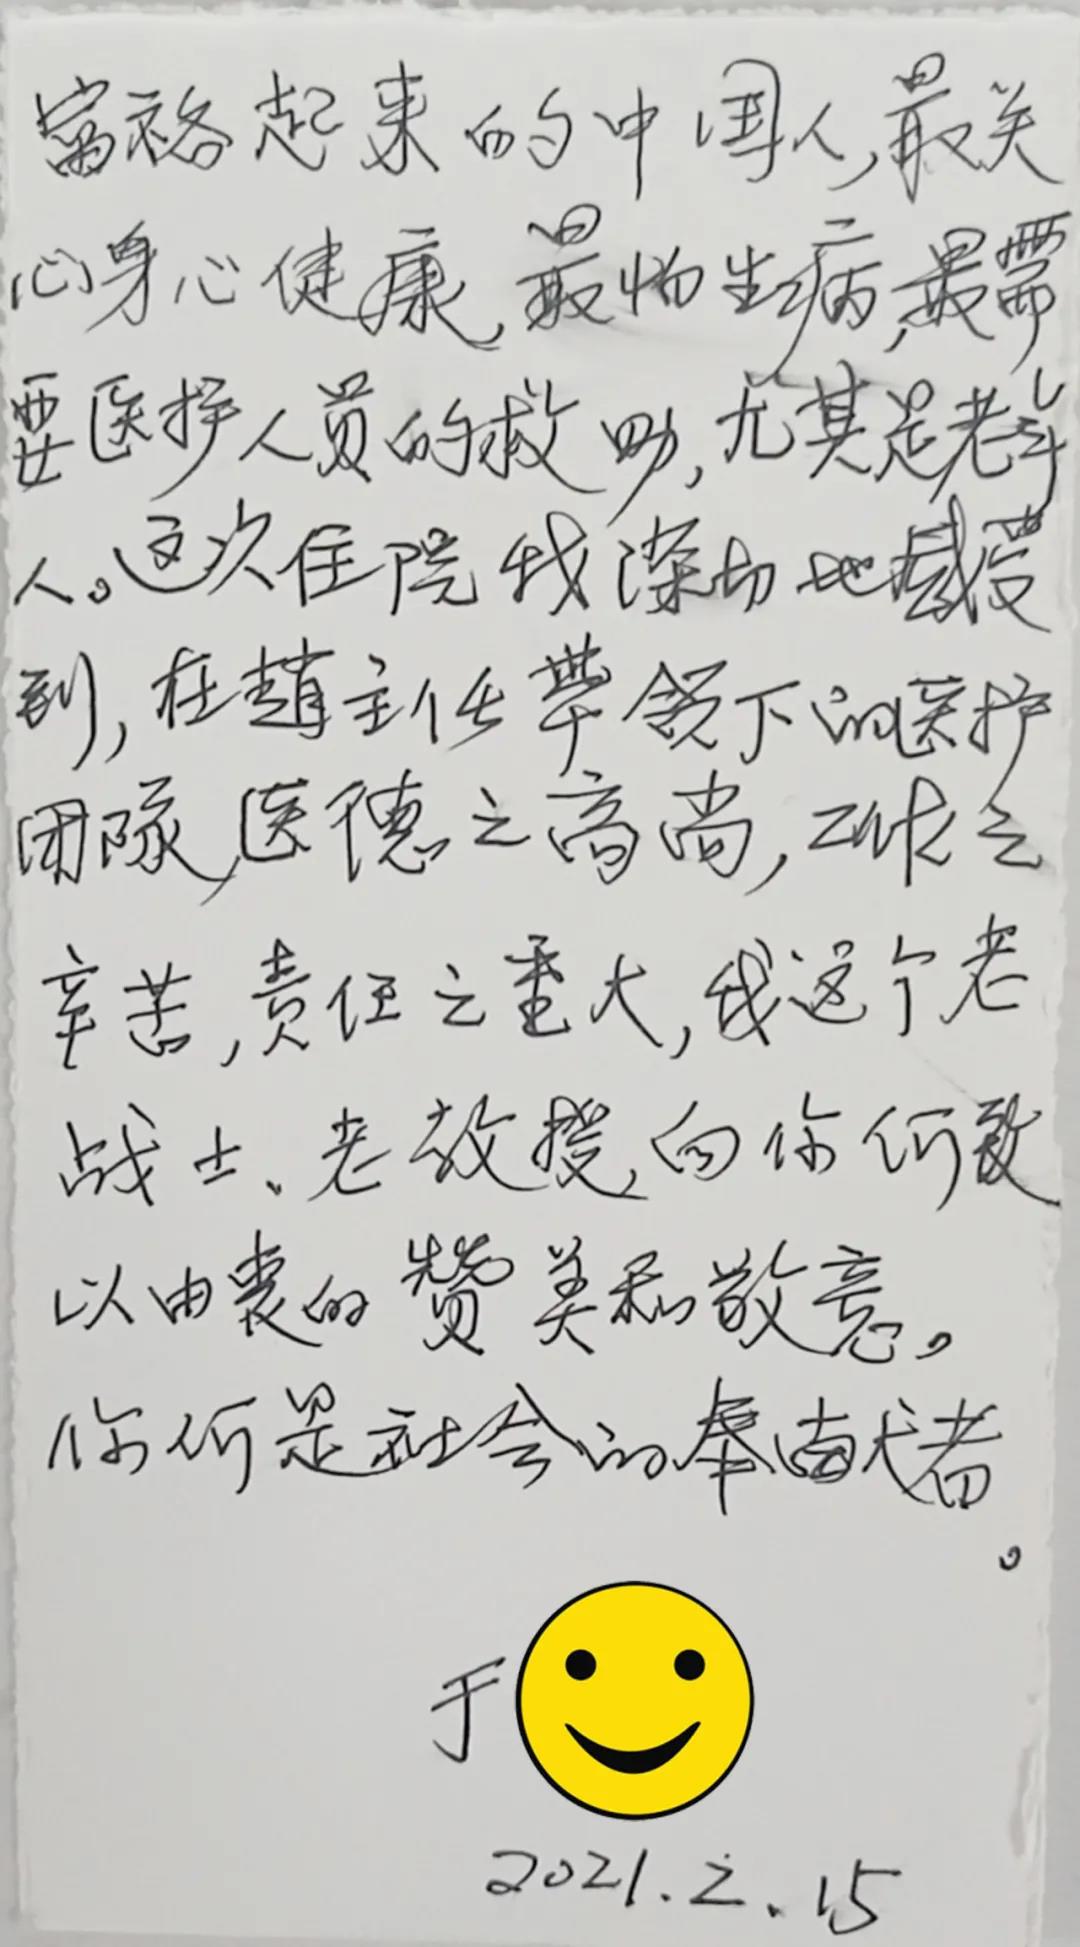 富裕起来的中国人,最关
心身心健康,最怕生病,最需
要医护人员的救助,尤其是老年
人。这次住院我深切地感受
到,在趙主任带领下的医护
团队,医德之高尚,工作之
辛苦,责任之重大,我这个老
战士、老教授,向你们致
以由衷的赞美和敬意。
你们是社会的奉献者
。
于
2021.2.15